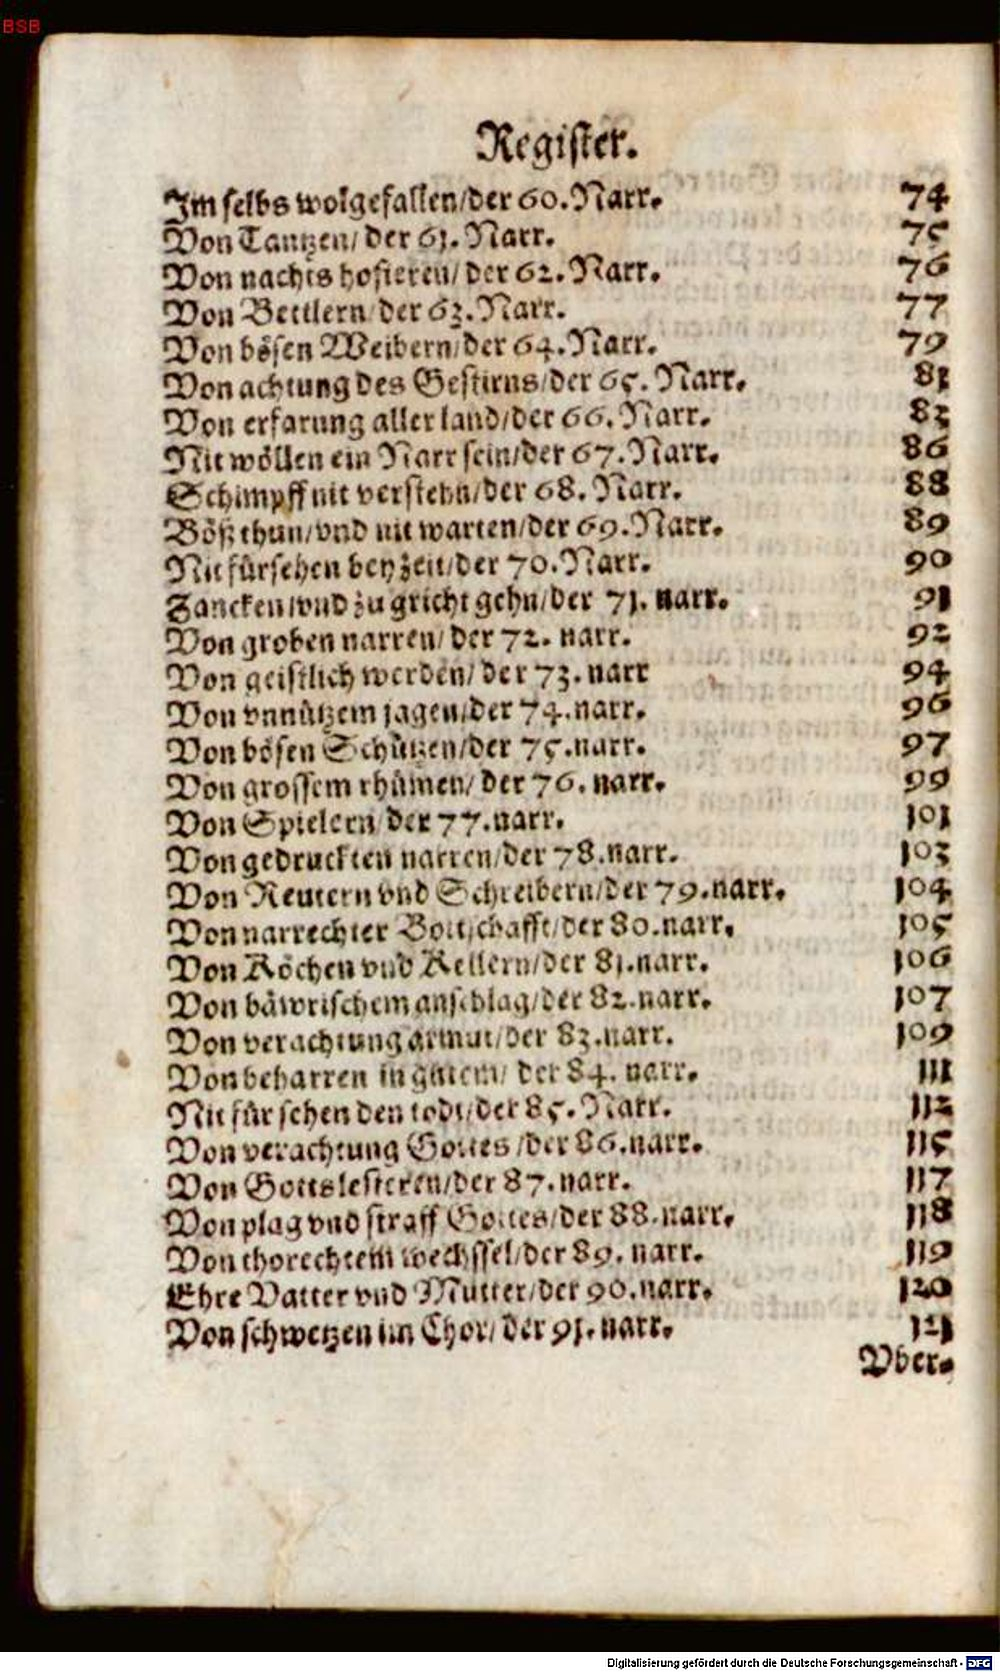 BSB
Register.
Im selbs wolgefallen/der 60. Narr. 74
Von Tantzen/ der 61. Narr. 75
Von nachts hofieren/ der 62. Narr. 76
Von Bettlern/der 63. Narr. 77
Von bösen Weibern/der 64. Narr. 79
Von achtung des Gestirns/der 65. Narr. 81
Von erfarung aller land/der 66. Narr. 83
Nit wöllen ein Narr sein/der 67. Narr. 86
Schimpff nit verstehn/der 68. Narr. 88
Böß thun/vnd nit warten/der 69. Narr. 89
Nit fürsehen bey zeit/der 70. Narr. 90
Zancken/vnd zu gricht gehn/der 71. narr. 91
Von groben narren/ der 72. narr. 92
Von geistlich werden/ der 73. narr 94
Von vnnützem jagen/der 74. narr. 96
Von bösen Schützen/der 75. narr. 97
Von grossem rhümen/ der 76. narr. 99
Von Spielern/der 77. narr. 101
Von gedruckten narren/der 78. narr. 103
Von Reutern vnd Schreibern/der 79. narr. 104
Von narrechter Bottschafft/der 80. narr. 105
Von Köchen vnd Kellern/der 81. narr. 106
Von bäwrischem anschlag/der 82. narr. 107
Von verachtung armut/der 83. narr. 109
Von beharren in gutem/ der 84. narr. 111
Nit für sehen den todt/der 85. Narr. 112
Von verachtung Gottes/der 86. narr. 115
Von Gottslesteren/der 87. narr. 117
Von plag vnd straff Gottes/der 88. narr. 118
Von thorechtem wechssel/der 89. narr. 119
Ehre Vatter vnd Mutter/der 90. narr. 120
Von schwetzen im Chor/ der 91. narr. 121
Vber-
Digitalisierung gefördert durch die Deutsche Forschungsgemeinschaft - DFG